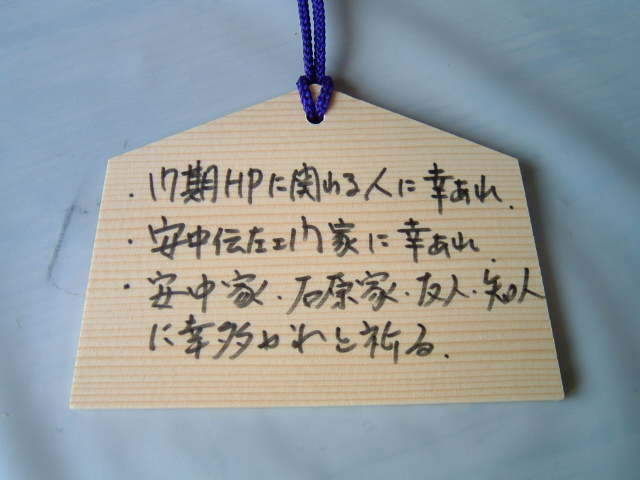 ・17期HPに関わる人に幸あれ.
・安中伝左エ門家に幸あれ.
・安中家.石原家.友人.知人
に幸多かれと祈る.